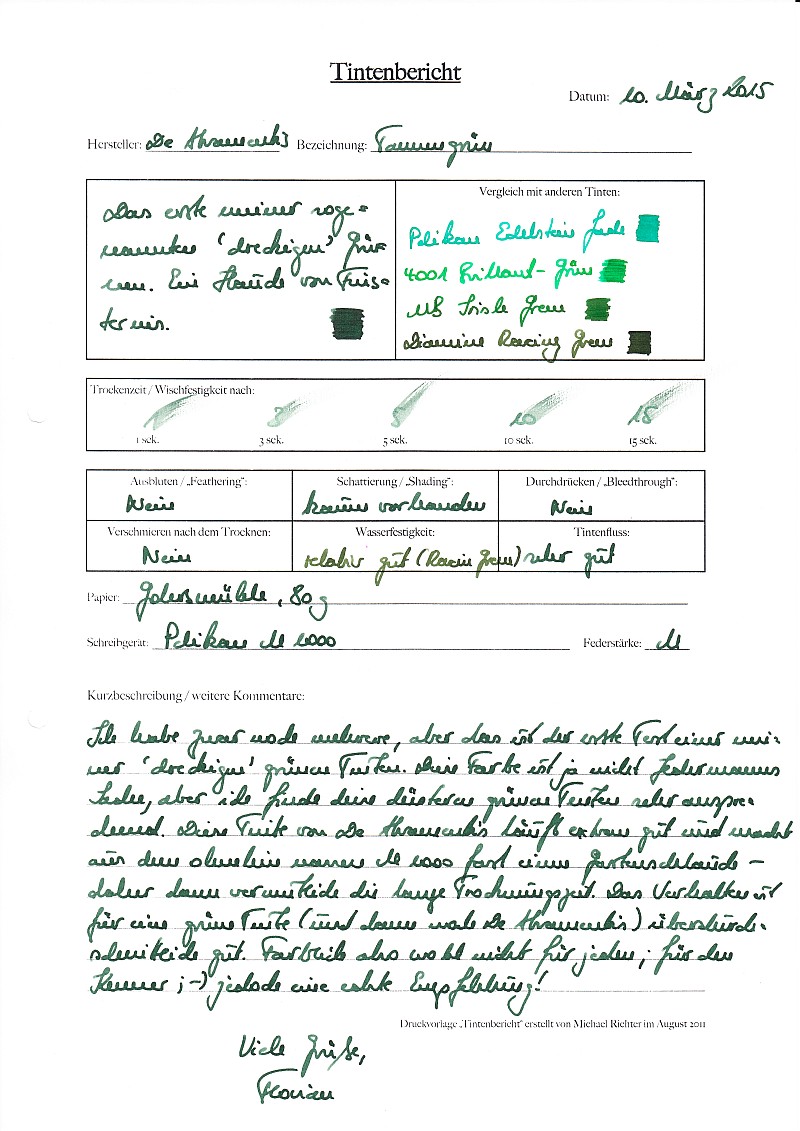 Tintenbericht
Datum: 10. März 2015
Hersteller: De Atramentis Bezeichnung: Tannengrün
Das erste meiner soge=
nannten 'dreckigen' Grü=
nen. Ein Hauch von Fins=
ternis.
Vergleich mit anderen Tinten:
Pelikan Edelstein Jade
4001 Brillant-Grün
MB Irish Green
Diamine Racing Green
Trockenzeit / Wischfestigkeit nach:
1 3 5 10 15
1 sek. 3 sek. 5 sek. 10 sek. 15 sek.
Ausbluten / „Feathering": Schattierung / „Shading": Durchdrücken / „Bleedthrough":
Nein kaum vorhanden Nein
Verschmieren nach dem Trocknen: Wasserfestigkeit: Tintenfluss:
Nein relativ gut (Racing Green) sehr gut
Papier: Gohrsmühle, 80g
Schreibgerät: Pelikan M 1000 Federstärke: M
Kurzbeschreibung / weitere Kommentare:
Ich habe zwar noch mehrere, aber das ist der erste Test einer mei-
ner 'dreckigen' grünen Tinten. Diese Farbe ist ja nicht jedermanns
Sache, aber ich finde diese düsteren grünen Tinten sehr anspre-
chend. Diese Tinte von De Atramentis läuft extrem gut und macht
aus dem ohnehin nassen M 1000 fast einen Gartenschlauch –
daher dann vermutlich die lange Trocknungszeit. Das Verhalten ist
für eine grüne Tinte (und dann noch De Atramentis) überdurch-
schnittlich gut. Farblich also wohl nicht für jeden; für den
Kenner ;-) jedoch eine echte Empfehlung!
Druckvorlage „Tintenbericht" erstellt von Michael Richter im August 2011
Viele Grüße,
Florian